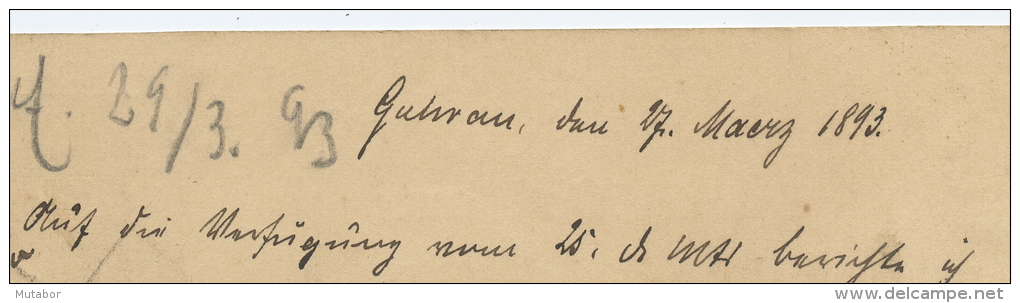 29/3. 93
Guhrau, den 27. Maerz 1893.
Auf die Verfügung vom 25. ds Mts berichte ich
Mutabor
www.delcampe.net